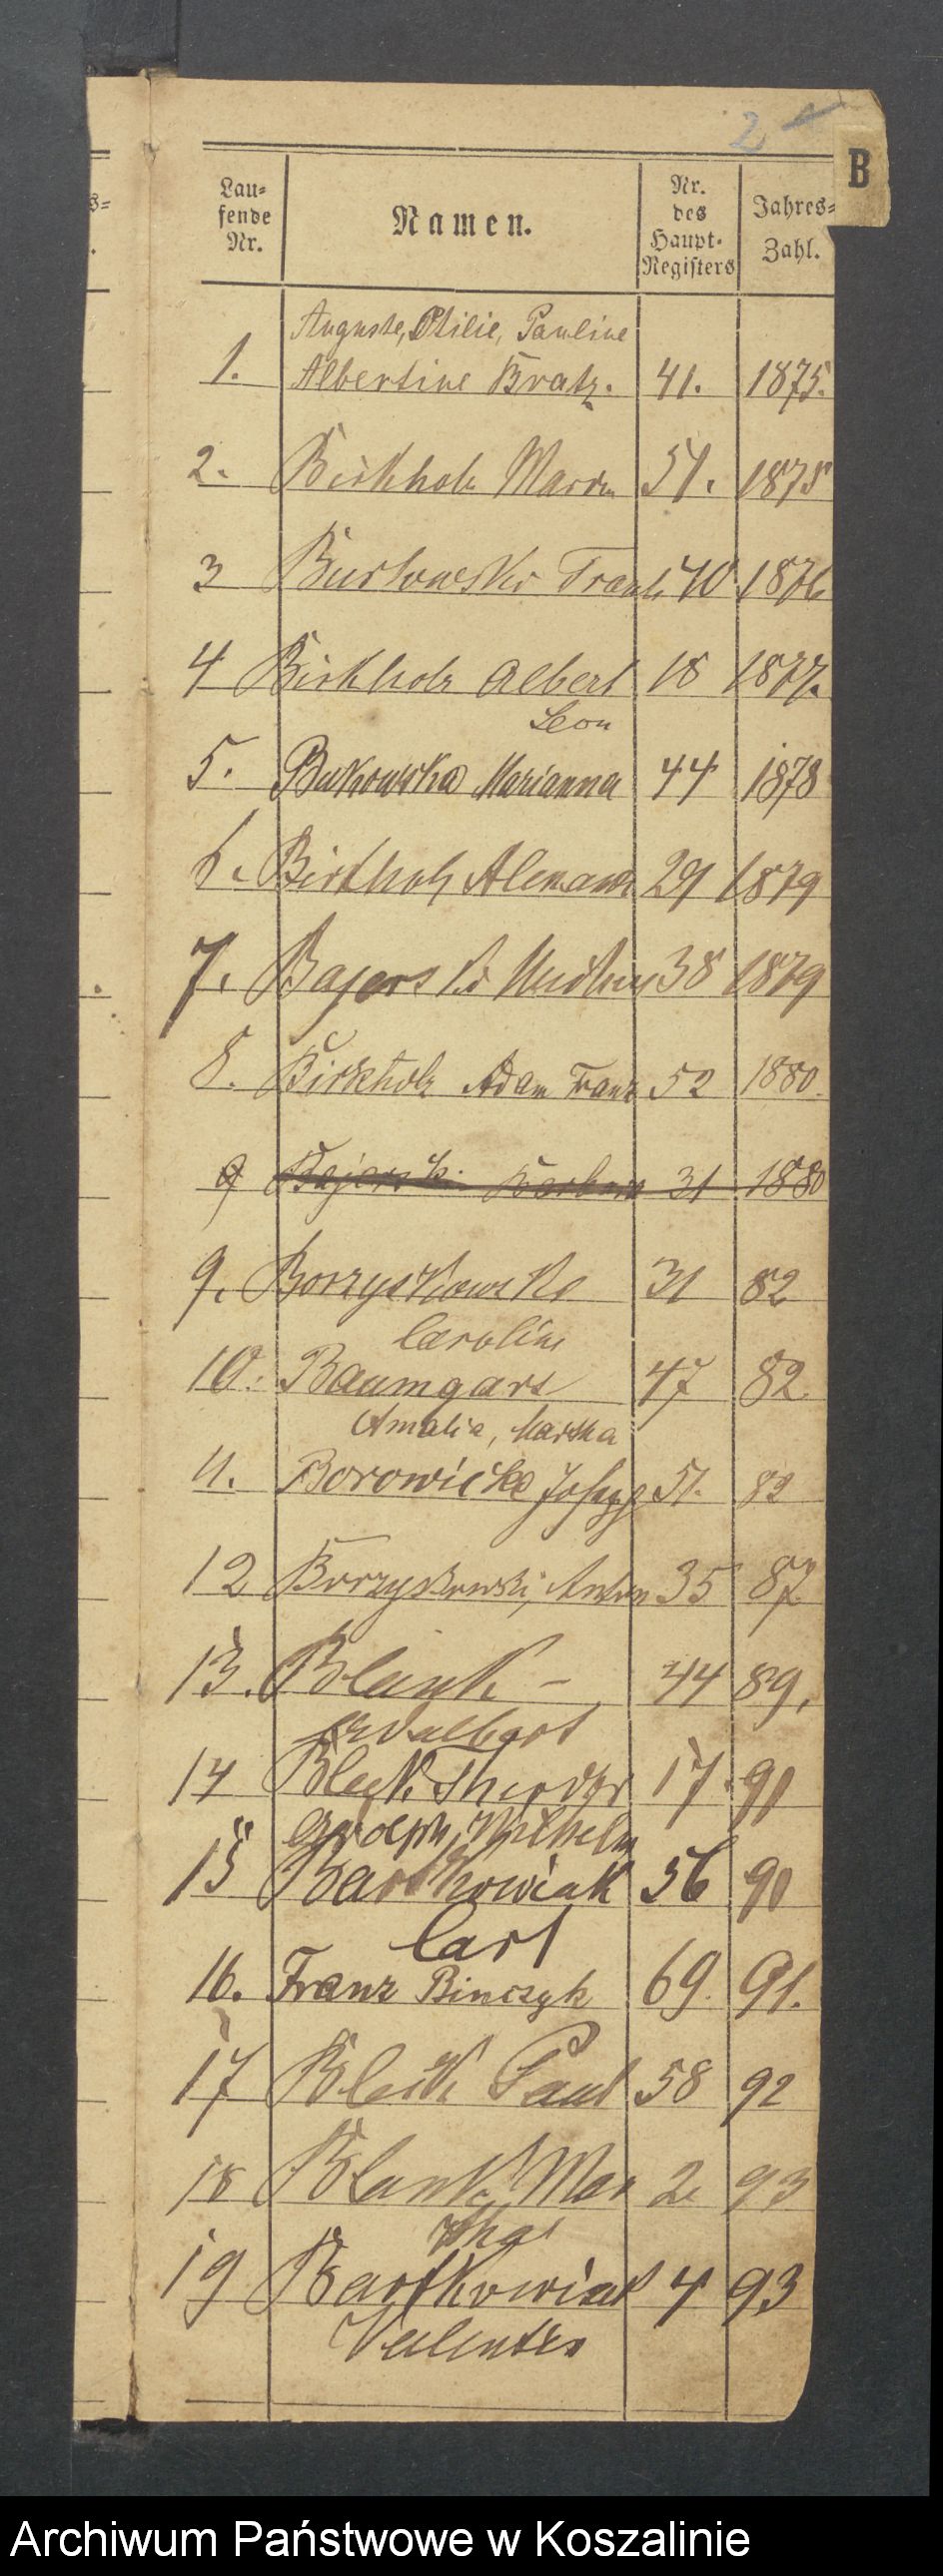 2
B
Lau=
fende
Nr.
Namen.
Nr.
des
Haupt=
Registers
Jahres=
Zahl.
Auguste, Otilie, Pauline
1. Albertine Bratz. 41. 1875.
2. Birkholz 51. 1875
3 40 1876
4 Birkholz Albert 18 1877.
Leon
5. Bukowska Marianna 44 1878
6. Birkholz 29 1879
7. Bajerski 38 1879
8. Birkholz Adam Franz 52 1880.
9 Bajerski Barbara 31 1880
9. Borzyskowski 31 82
Caroline
10. Baumgart 47 82
Amalia, Martha
11. Borowicka Joseph 51. 82
12 Borzyskowski, Anton 35 87
13. Blank - 44 89,
14 Bleck Theodor 17. 91
Wilhelm
15 Bartkowiak 56 90
Carl
16. Franz Binczyk 69. 91.
17 Bleck Paul 58 92
18 Blank Mar 2 93
tha
19 Bartkowiak 4 93
Valentin
Archiwum Państwowe w Koszalinie